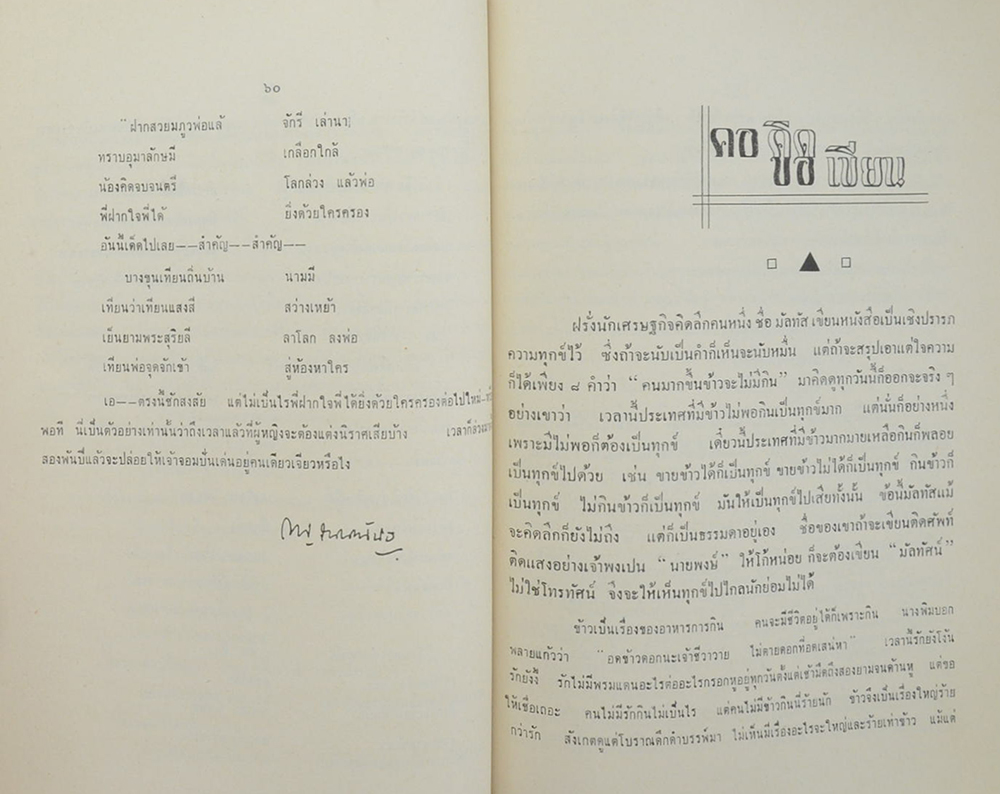 ๖๐
"ฝากสวยมภูวพ่อแล้ จักรี เล่านา
ทราบอุมาลักษมี เกลือกใกล้
น้องคิดจบจนตรี โลกล่วง แล้วพ่อ
พี่ฝากใจพี่ได้ ยิ่งด้วยใครครอง
อันนี้เด็ดไปเลย——สำคัญ——สำคัญ——
บางขุนเทียนถิ่นบ้าน นามมี
เทียนว่าเทียนแสงสี สว่างเหย้า
เย็นยามพระสุริยลี ลาโลก ลงพ่อ
เทียนพ่อจุดจักเข้า สู่ห้องหาใคร
เอ—ตรงนี้ชักสงสัย แต่ไม่เป็นไรพี่ฝากใจพี่ได้ยิ่งด้วยใครครองต่อไปใหม่
พอที นี่เป็นตัวอย่างเท่านั้นว่าถึงเวลาแล้วที่ผู้หญิงจะต้องแต่งนิราศเสียบ้าง
สองพันปีแล้วจะปล่อยให้เจ้าจอมบั่นเด่นอยู่คนเดียวเจียวหรือไง
คอ คิด ขีด เขียน
ฝรั่งนักเศรษฐกิจคิดลึกคนหนึ่ง ชื่อ มัลทัส เขียนหนังสือเป็นเชิงปรารภ
ความทุกข์ไว้ ซึ่งถ้าจะนับเป็นคำก็เห็นจะนับหมื่น แต่ถ้าจะสรุปเอาแต่ใจความ
ก็ได้เพียง ๘ คำว่า "คนมากขึ้นข้าวจะไม่มีกิน" มาคิดดูทุกวันนี้ก็ออกจะจริง ๆ
อย่างเขาว่า เวลานี้ประเทศที่มีข้าวไม่พอกินเป็นทุกข์มาก แต่นั่นก็อย่างหนึ่ง
เพราะมีไม่พอก็ต้องเป็นทุกข์ เดี๋ยวนี้ประเทศที่มีข้าวมากมายเหลือกินก็พลอย
เป็นทุกข์ไปด้วย เช่น ขายข้าวได้ก็เป็นทุกข์ ขายข้าวไม่ได้ก็เป็นทุกข์ กินข้าวก็
เป็นทุกข์ ไม่กินข้าวก็เป็นทุกข์ มันให้เป็นทุกข์ไปเสียทั้งนั้น ข้อนี้มัลทัสแม้
จะคิดลึกก็ยังไม่ถึง แต่ก็เป็นธรรมดาอยู่เอง ชื่อของเขาถ้าจะเขียนติดศัพท์
ติดแสงอย่างเจ้าพงเปน "นายพงษ์" ให้โก้หน่อย ก็จะต้องเขียน "มัลทัศน์"
ไม่ใช่โทรทัศน์ จึงจะให้เห็นทุกข์ไปไกลนักย่อมไม่ได้
ข้าวเป็นเรื่องของอาหารการกิน คนจะมีชีวิตอยู่ได้ก็เพราะกิน นางพิมบอก
พลายแก้วว่า "อดข้าวดอกนะเจ้าชีวาวาย ไม่ตายดอกที่อดเสน่หา" เวลานี้รักยังโง้น
รักยังงี้ รักไม่มีพรมแดนอะไรต่ออะไรกรอกหูอยู่ทุกวันตั้งแต่เช้ามืดถึงสองยามจนด้านหู แต่ขอ
ให้เชื่อเถอะ คนไม่มีรักกินไม่เป็นไร แต่คนไม่มีข้าวกินนี่ร้ายนัก ข้าวจึงเป็นเรื่องใหญ่ร้าย
กว่ารัก สังเกตดูแต่โบราณดึกดำบรรพ์มา ไม่เห็นมีเรื่องอะไรจะใหญ่และร้ายเท่าข้าว แม้แต่